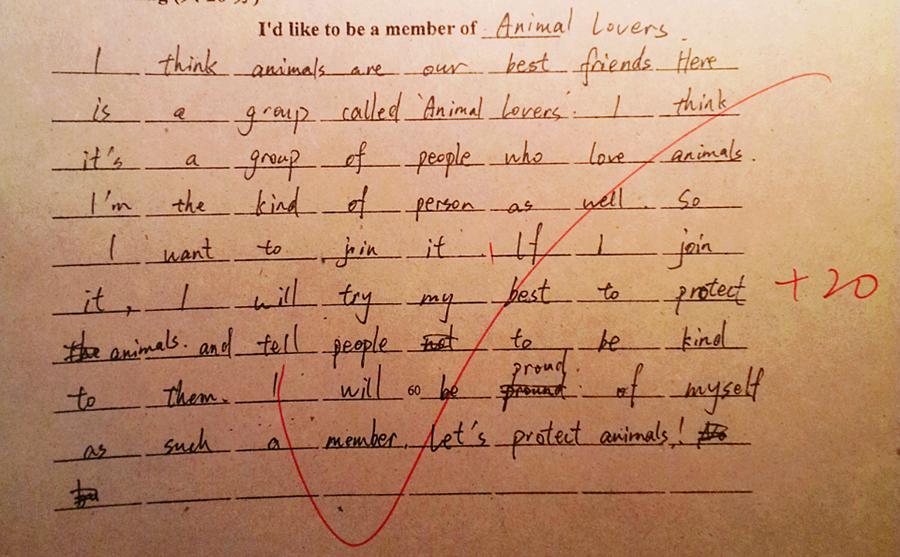 I'd like to be a member of Animal Lovers.
I think animals are our best friends. Here
is a group called 'Animal Lovers'. I think
it's a group of people who love animals.
I'm the kind of person as well. So
I want to join it. If I join
it, I will try my best to protect
the animals. and tell people not to be kind
to them. I will 60 be pround proud of myself
as such a member. Let's protect animals!
+20